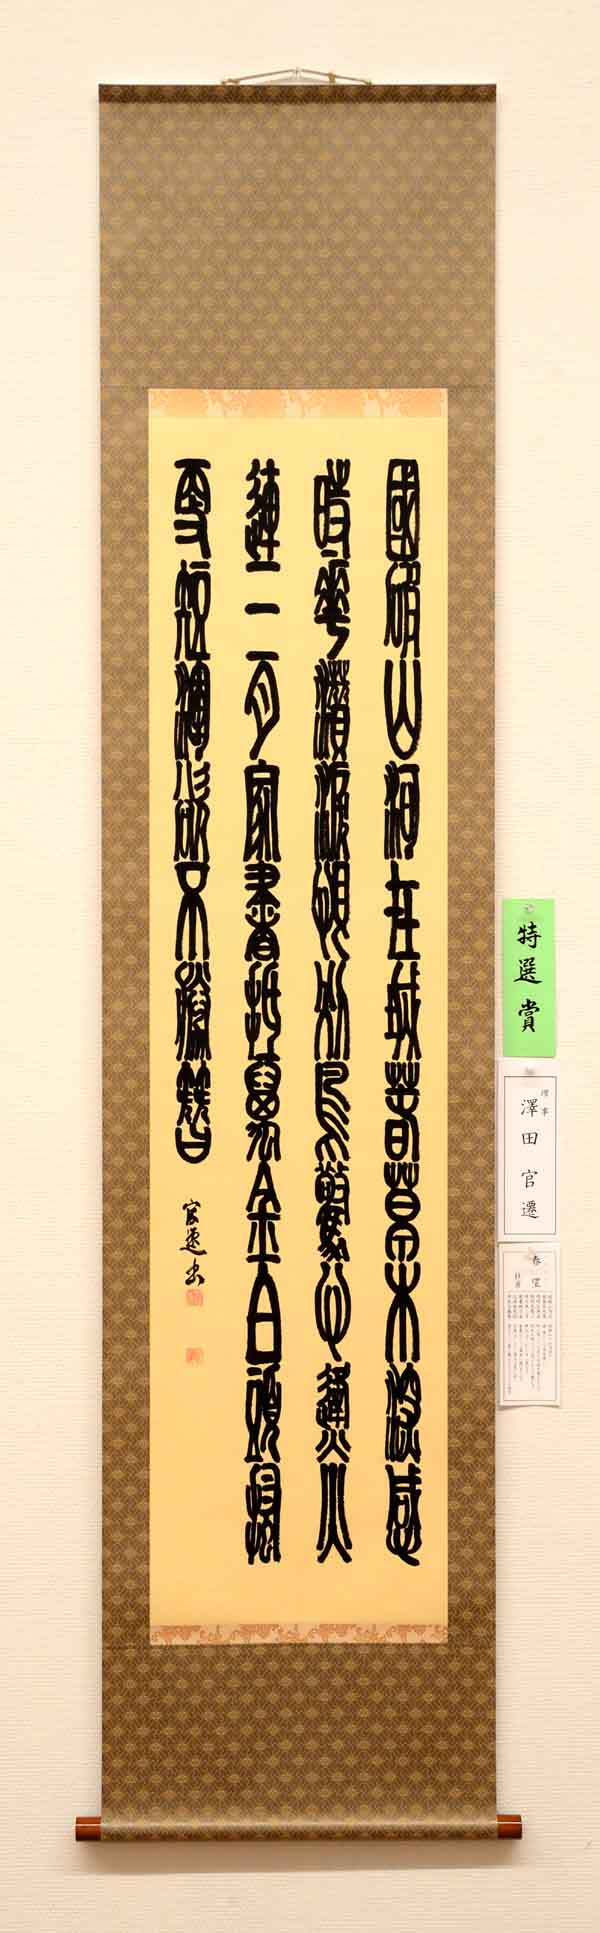 國破山河在城春草木深感
時花濺淚恨別鳥驚心烽火
連三月家書抵萬金白頭搔
更短渾欲不勝簪
官遷書
特選賞
理事
澤田官遷
春望
杜甫